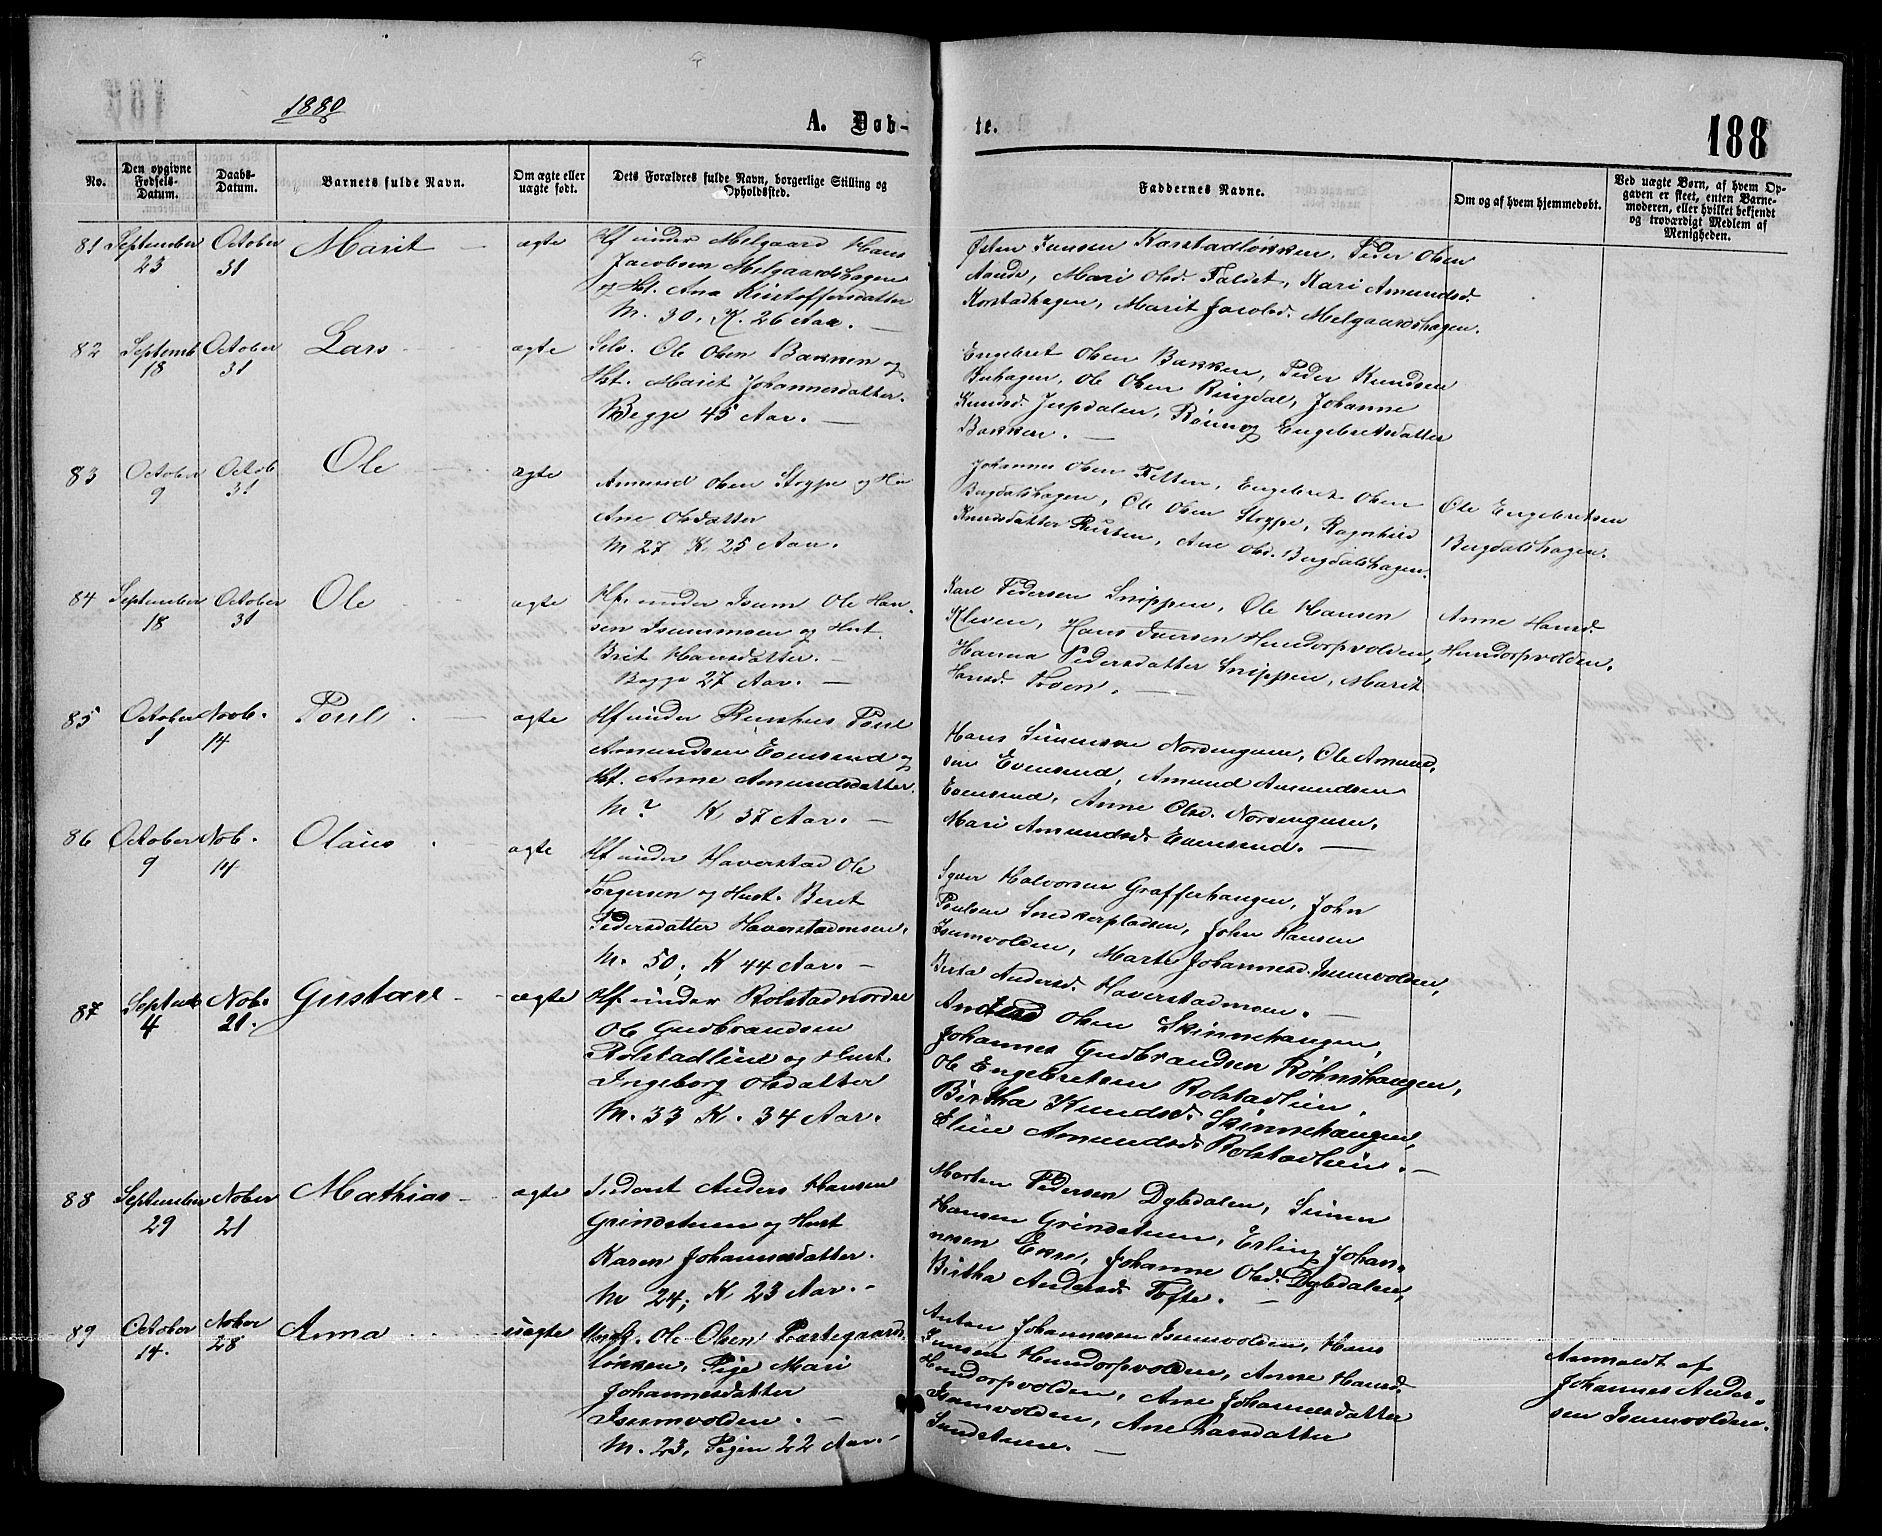 1880
A. Døb-
te.
188
No.
Den opgivne Fødsels-Datum.
Daabs-Datum.
Barnets fulde Navn.
Om ægte eller uægte født.
Dets Forældres fulde Navn, borgerlige Stilling og Opholdssted.
Faddernes Navne.
Om og af hvem hjemmedøbt.
Ved uægte Børn, af hvem Op-
gaven er skeet, enten Barne-
moderen, eller hvilket bekjendt
og troværdigt Medlem af
Menigheden.
81 September 23 October 31 Marit ægte
Hf. under Melgaard Hans
Jacobsen Melgaardshagen
og Hst. Ana Kristoffersdatter
M. 30, K. 26 Aar.
Østen Jensen Korstadløkken, Peder Olsen
Aande, Mari Olsd. Faldet, Kari Amundsd.
Korstadhagen, Marit Jacobsd. Melgaardshagen.
82 Septemb 18 October 31 Lars ægte
Selv. Ole Olsen Bakken og
Hst. Marit Johannesdatter.
Begge 45 Aar.
Engebret Olsen Bakken, Peder Knudsen
Ole Olsen Ringdal, Johanne
Knudsd. Engebretsdatter
Bakken.
83 October 9 Octob 31 Ole ægte
Amund Olsen Stoype og Hu
Ane Olsdatter
M 27 K 25 Aar.
Johannes Olsen Felten, Engebret Olsen
Bergdalshagen, Ole Olsen Stoype, Ragnhild
Knudsdatter Rusten, Ane Olsd. Bergdalshagen.
Ole Engebretsen
Bergdalshagen.
84 September 18 October 31 Ole ægte
Hf. under Isum Ole Han-
sen Isummoen og Hust.
Brit Hansdatter.
Begge 27 Aar.
Karl Pedersen Snippen, Ole Hansen
Kleven, Hans Iversen Hundorpvolden,
Hanna Pedersdatter Snippen, Marit
Hansd. Loen.
Anne Hansd.
Hundorpvolden.
85 October 1 Novb. 14 Poul ægte
Hf. under Rushus Poul
Amundsen Evensend og
Hst. Anne Amundsdatter.
M ? K 37 Aar.
Hans Simensen NordengUen, Ole Amund-
sen Evensend, Amund Amundsen
Evensend, Anne Olsd. Nordenguen,
Mari Amundsd. Evensend.
86 October 9 Nob. 14 Olaus ægte
Hf. under Haverstad Ole
Torgersen og Hust. Beret
Pedersdatter Haverstadmoen.
M. 50, K 44 Aar.
Syver Halvorsen Grafferhaugen, John
Poulsen Snedkerpladsen, John Hansen
Isumvolden, Marte Johannesd. Isumvolden,
Berta Andersd. Haverstadmoen.
87 Septemb 4 Nob. 21. Gustav ægte
Hf. under Rolstad nordre
Ole Gudbrandsen
Rolstadlien og Hust.
Ingeborg Olsdatter
M. 33 K. 34 Aar.
Olsen Skinnehaugen,
Johannes Gudbrandsen Røhnshaugen,
Ole Engebretsen Rolstadlien,
Birtha Knudsd. Skinnehaugen,
Eline Amundsd. Rolstadlien.
88 September 29 Nober 21 Mathias ægte
Inderst Anders Hansen
Grindstuen og Hust
Karen Johannesdatter.
M 24; K 23 Aar.
Morten Pedersen Dybdalen, Simen
Hansen Grindstuen, Erling Johan-
nesen Ekre, Johanne Olsd. Dybdalen,
Birtha Andersd. Tofte.
89 October 14. Nober 28 Anna uægte
Ungk. Ole Olsen Partegaards-
løkken, Pige Mari
Johannesdatter
Isumvolden.
M. 23, Pigen 22 Aar.
Anton Johannesen Isumvolden, Hans
Iversen Hundorpvolden, Anne Hansd.
Hundorpvolden, Ane Johannesdatter
Isumvolden, Ane Larsdatter
Sundstuen.
Anmeldt af
Johannes Ander-
sen Isumvolden.